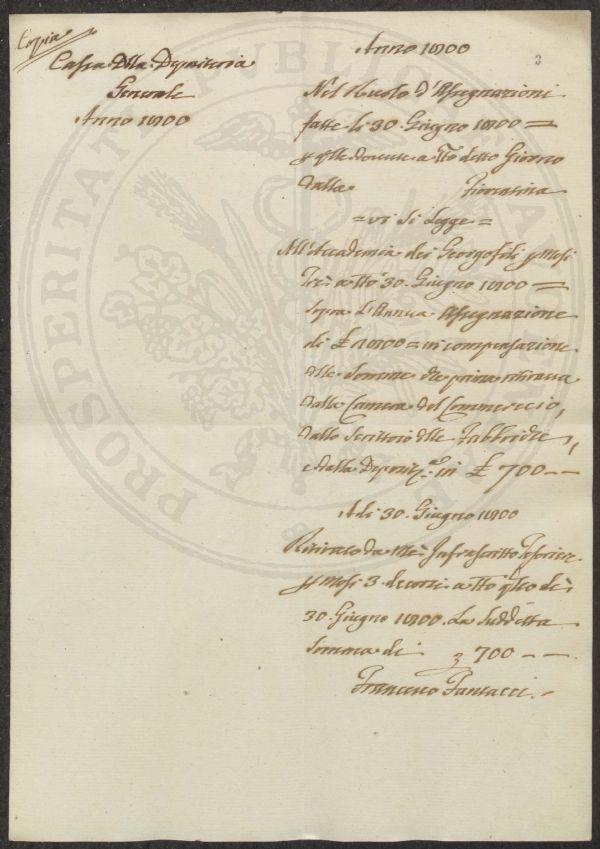 Copia
Cassa della Depositeria
Generale
Anno 1800
Anno 1800
2
Nel Ruolo d'Assegnazioni
fatte li 30. Giugno 1800 =
p quelle dovute a tto detto Giorno
dalla Fiorentina
= vi si Legge =
All'Accademia dei Georgofili p Mesi
Tre a tto 30. Giugno 1800 =
sopra l'Annua Assegnazione
di £ 2800 = in compensazione
delle Somme che prima ritirava
dalla Camera del Commercio,
dallo Scrittoio delle Fabbriche,
e dalla Deposit.a in £ 700 - -
A di 30. Giugno 1800
Ricevuto da Me Infrascritto Tesorier.
p Mesi 3. decorsi a tto q.sto dì
30. Giugno 1800. La Suddetta
somma di £ 700 - -
Francesco Pantacci. -
PROSPERITATI PUBLICAE AUGENDAE